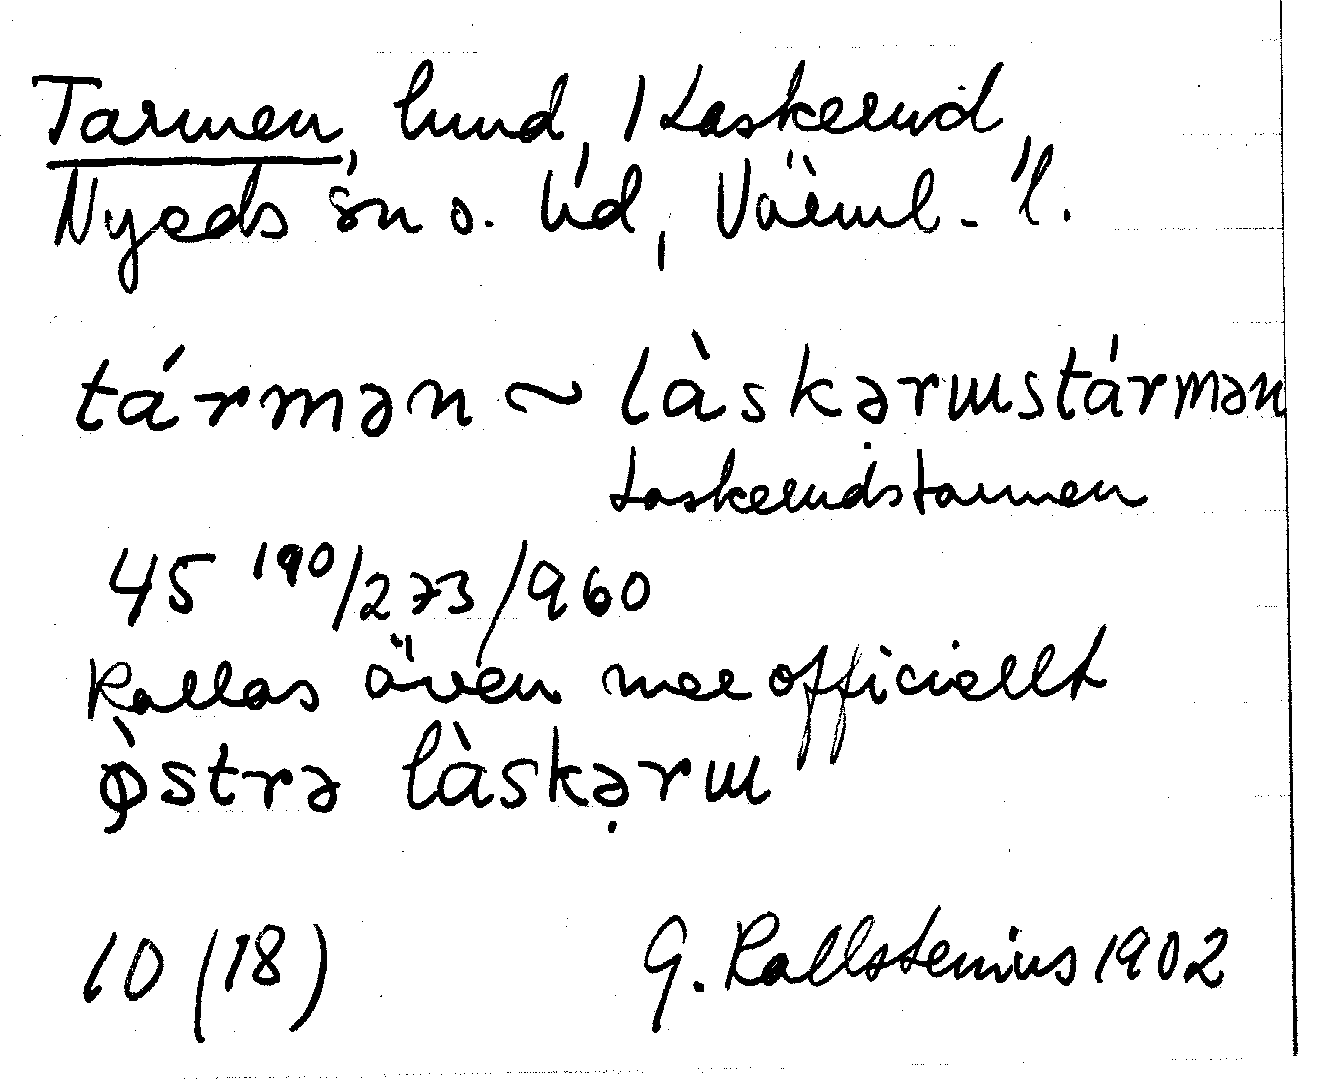 Tarmen, lund, 1 Laskerud,
Nyeds sn o. hd, Värml. l.
tármən ~ làskərɯstármən
Laskerudstarmen
45 190/273/960
Kallas även mer officiellt
ø̀strə làskə̣rɯ
10 (18) G. Kallstenius 1902